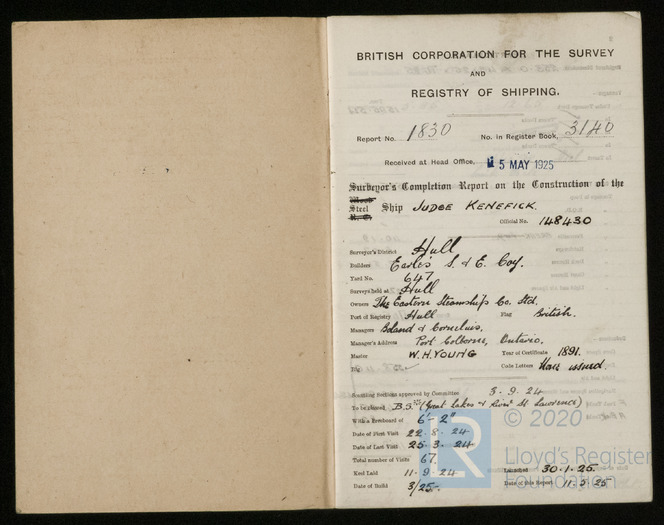 BRITISH CORPORATION FOR THE SURVEY
AND
REGISTRY OF SHIPPING.
Report No. 1830 No. in Register Book, 3140
Received at Head Office, 5 MAY 1925
Surveyor's Completion Report on the Construction of the
Steel Ship JUDGE KENEFICK.
Official No. 148430
Surveyor's District Hull
Builders Earle's S. & E. Coy.
Yard No. 647
Surveys held at Hull
Owners The Eastern Steamships Co. Ltd.
Port of Registry Hull Flag British.
Managers Boland & Cornelius.
Manager's Address Port Colborne, Ontario.
Master W. H. YOUNG Year of Certificate 1891.
Rig Code Letters None issued
Scantling Sections approved by Committee 3-9-24
To be classed B.S. (Great Lakes & River St Lawrence)
With a Freeboard of 6'-2"
Date of First Visit 22-8-24
Date of Last Visit 25-3-24
Total number of Visits 67.
Keel Laid 11-9-24 Launched 30-1-25.
Date of Build 3/25. Date of this Report 11-5-25
© 2020
Lloyd's Register
Foundation